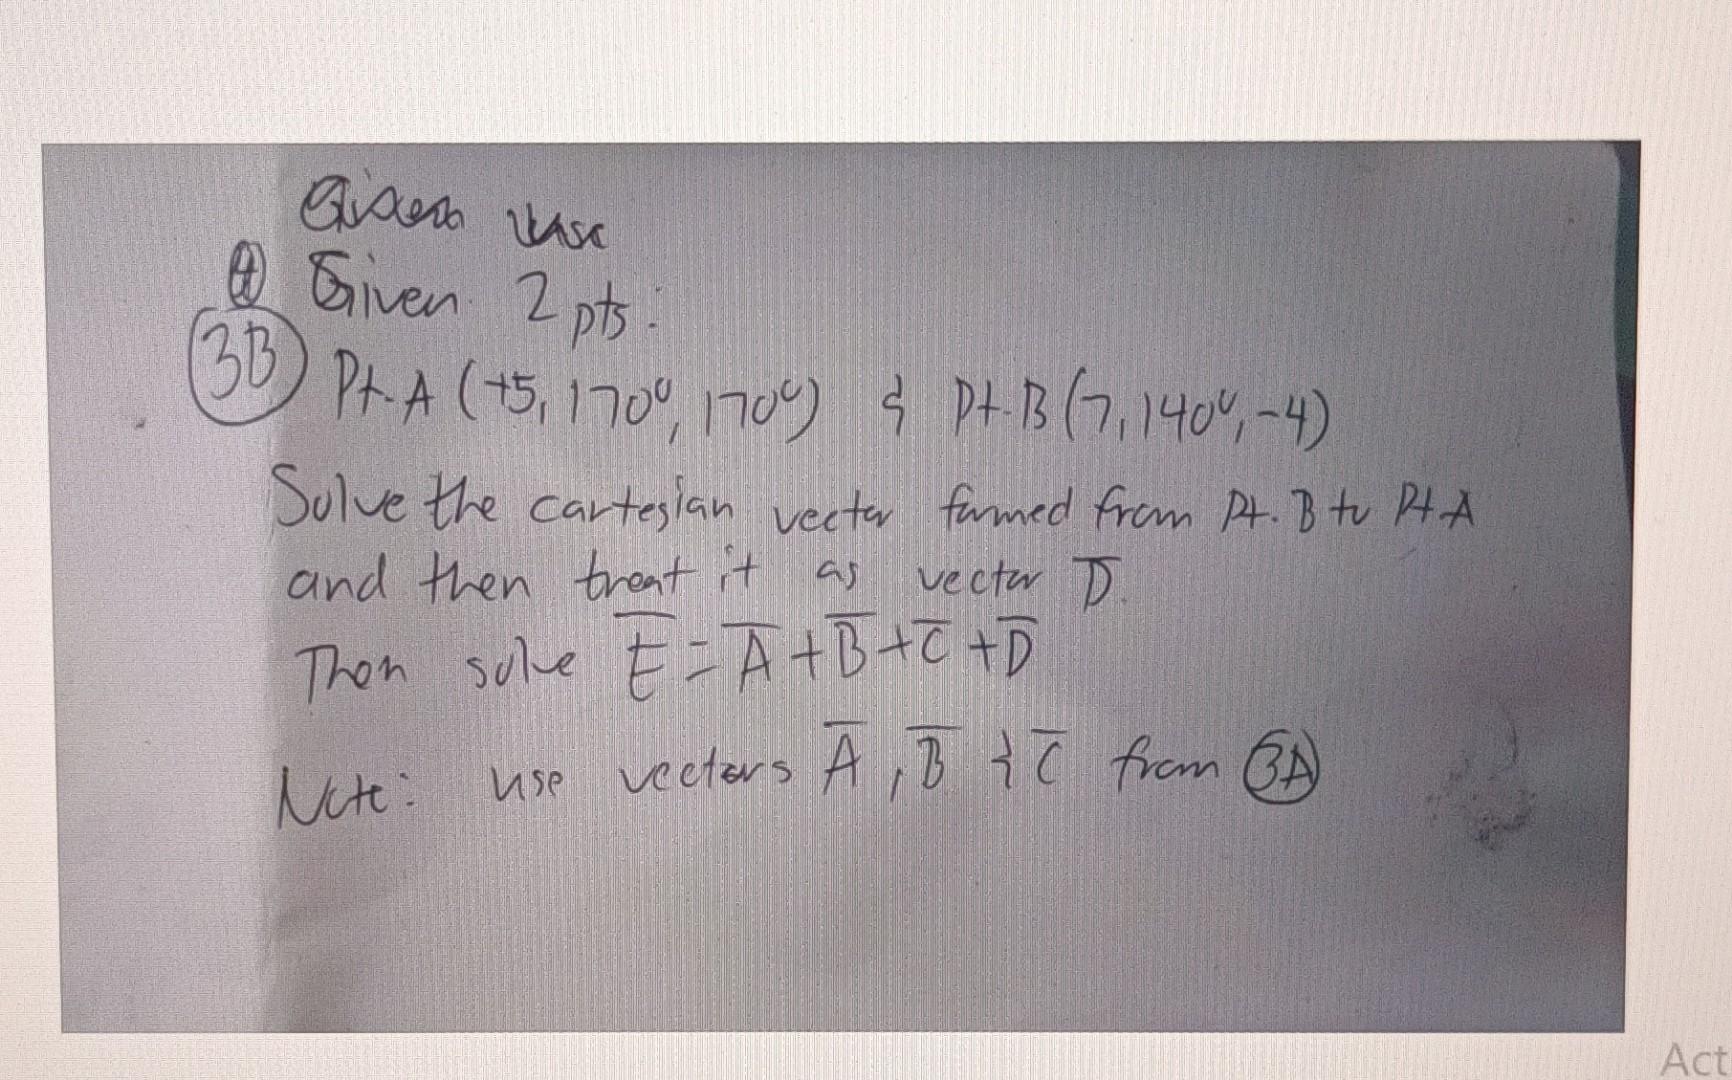 Given use
④ Given 2 pts:
3B Pt. A (+5, 170°, 170°) & Pt. B (7, 140°, -4)
Solve the cartesian vector formed from Pt. B to Pt. A
and then treat it as vector D̅.
Then solve E̅ = A̅ + B̅ + C̅ + D̅
Note: use vectors A̅, B̅ & C̅ from 3A
Act